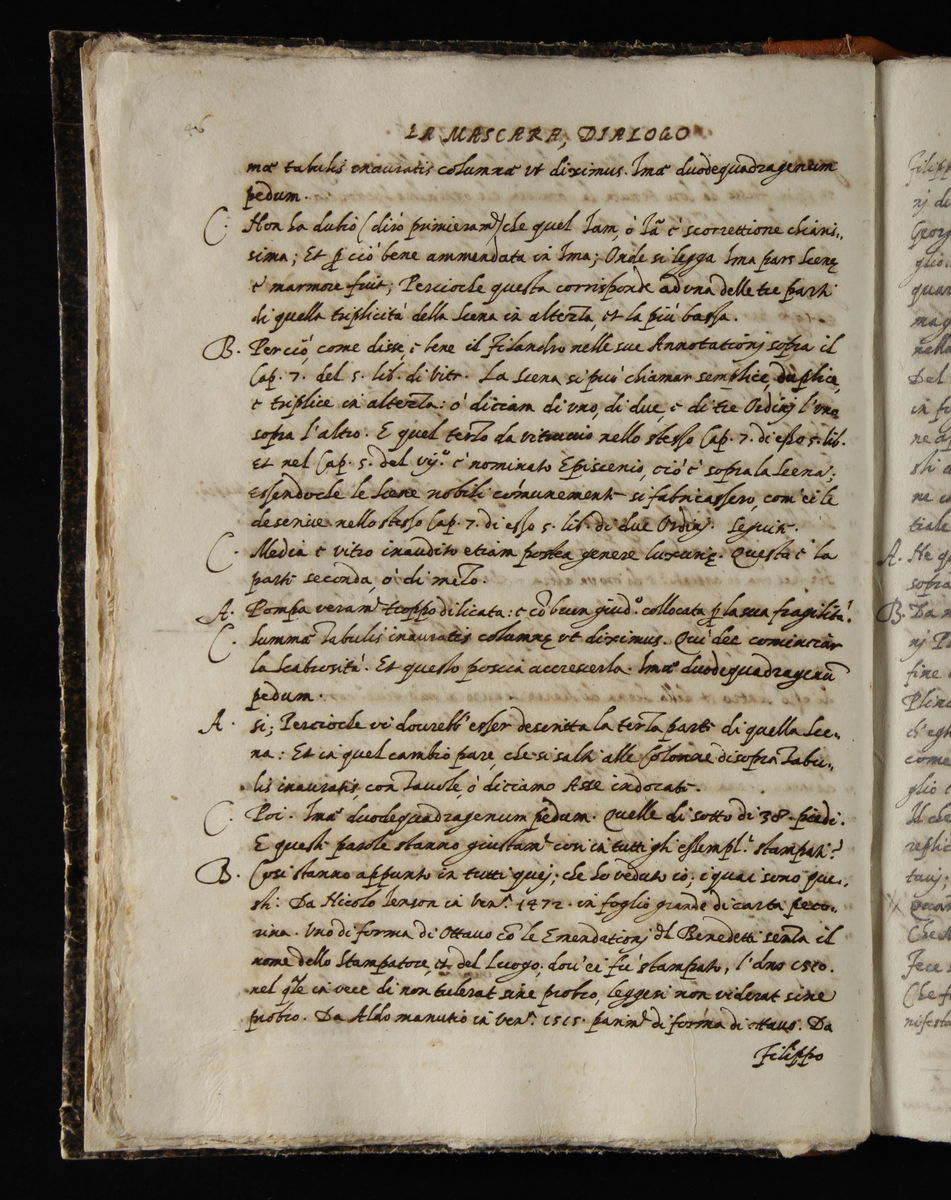 46
LA MASCARA, DIALOGO
mae tabulis inauratis columnae ut diximus. Imae duodequadragenum
pedum.
C. Non ha dubio (dirò primieram.te) che quel Iam, ò Iã è scorrettione chiaris-
sima; Et p ciò bene ammendata in Ima; Onde si legga Ima pars Scenę
è marmore fuit; Percioche questa corrisponde ad una delle tre parti
di quella triplicità della Scena in altezza, et la più bassa.
B. Perciò, come disse, è bene il Filandro nelle sue Annotationj sopra il
Cap. 7. del 5. lib. di Vitr. La Scena si può chiamar semplice, duplice,
e triplice in altezza: ò diciam di uno, di due, e di tre Ordinj l'uno
sopra l'altro. E quel terzo da vitruvio nello stesso Cap. 7. di esso 5. lib.
Et nel Cap. 5. del vij.o è nominato Episcenio, ciò è sopra la Scena;
essendoche le Scene nobili comunemente si fabricassero, com'ei le
descrive nello stesso Cap. 7. di esso 5. lib. di due Ordinj. Seguite.
C. Media è vitro inaudito etiam postea genere luxurię. Questa è la
parte seconda, ò di mezo.
A. Pompa veram.te troppo dilicata: e cõ buon giud.o collocata p la sua fragilità!
C. Summae Tabulis inauratis columnę ut diximus. Quì dee cominciar
la Scabrosità. Et questo poscia accrescerla. Imae duodequadragenũ
pedum.
A. Si; Percioche vi dourebb'esser descritta la terza parte di quella Sce-
na: Et in quel cambio pare, che si salti alle Colonne di sopra Tabu-
lis inauratis, con Tavole, ò diciamo Asse indorate.
C. Poi. Imae duodequadragenum pedum. Quelle di sotto di 38. piedi.
E queste parole stanno giustam.te così in tutti gli essempl.i stampati?
B. Così stanno appunto in tutti quej, che ho veduto io; i quai sono que-
sti: Da Nicolo Ienson in Ven.a 1472. in foglio grande di carta peco-
rina. Uno di forma di Ottavo cõ le Emendationj del Benedetti senza il
nome dello Stampatore, et del Luogo, dov'ei fu stampato, l'Anno 1510.
nel qle in vece di non tulerat sine probro, leggesi non viderat sine
probro. Da Aldo manutio in Ven.a 1515. parim.te di forma di ottavo. Da
Filippo